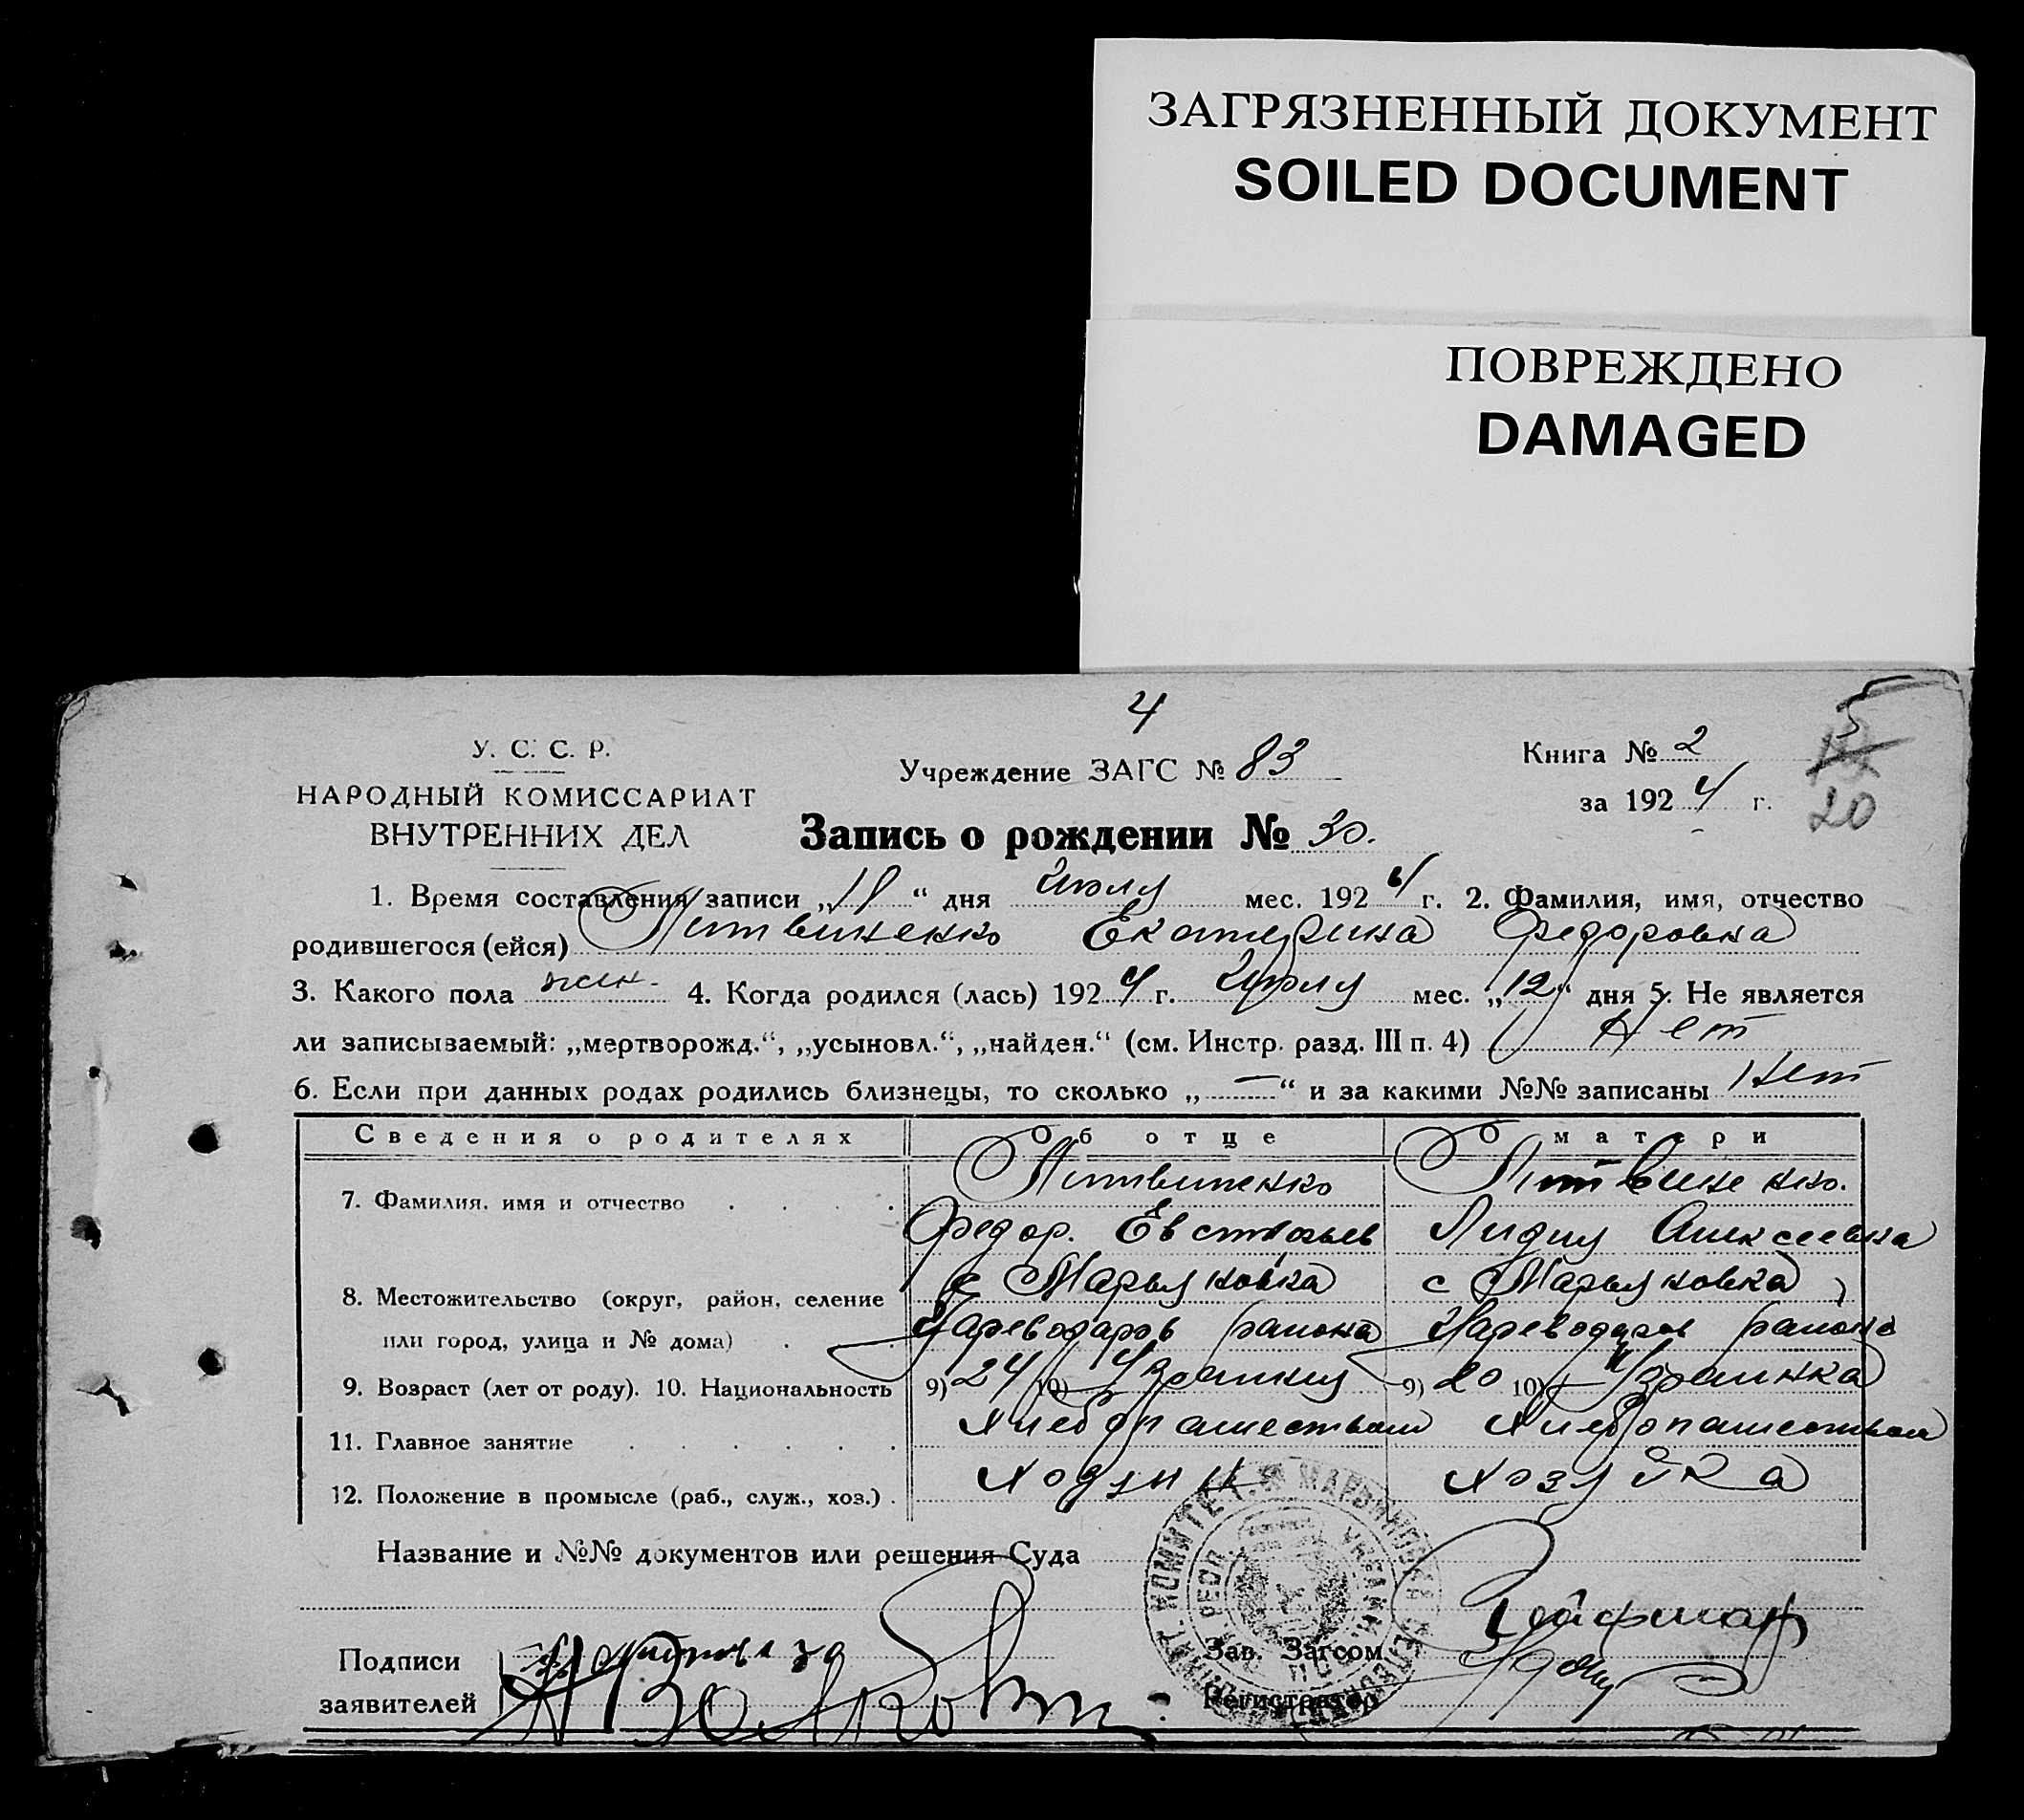 ЗАГРЯЗНЕННЫЙ ДОКУМЕНТ
SOILED DOCUMENT
ПОВРЕЖДЕНО
DAMAGED
4
5
У. С. С. Р.
НАРОДНЫЙ КОМИССАРИАТ
ВНУТРЕННИХ ДЕЛ
Учреждение ЗАГС № 83
Книга № 2
за 1924 г.
20
Запись о рождении № 30.
1. Время составления записи „ “ дня июля мес. 1924 г. 2. Фамилия, имя, отчество
родившегося (ейся) Литвиненко Екатерина Федоровна
3. Какого пола жен. 4. Когда родился (лась) 1924 г. Июля мес. „12“ дня 5. Не является
ли записываемый: „мертворожд.“, „усыновл.“, „найден.“ (см. Инстр. разд. III п. 4) Нет
6. Если при данных родах родились близнецы, то сколько „—“ и за какими №№ записаны Нет
Сведения о родителях Об отце О матери
7. Фамилия, имя и отчество Литвиненко Литвиненко.
Федор. Лидия Алексеевна
8. Местожительство (округ, район, селение с Марьяновка с Марьяновка,
или город, улица и № дома) Цареводаров района Цареводаров района
9. Возраст (лет от роду). 10. Национальность 9) 24 10) 9) 20 10) Украинка
11. Главное занятие Хлебопашеством Хлебопашеством
12. Положение в промысле (раб., служ., хоз.) Хозяйка
Название и №№ документов или решения Суда
Подписи
заявителей
Зав. Загсом
Регистратор